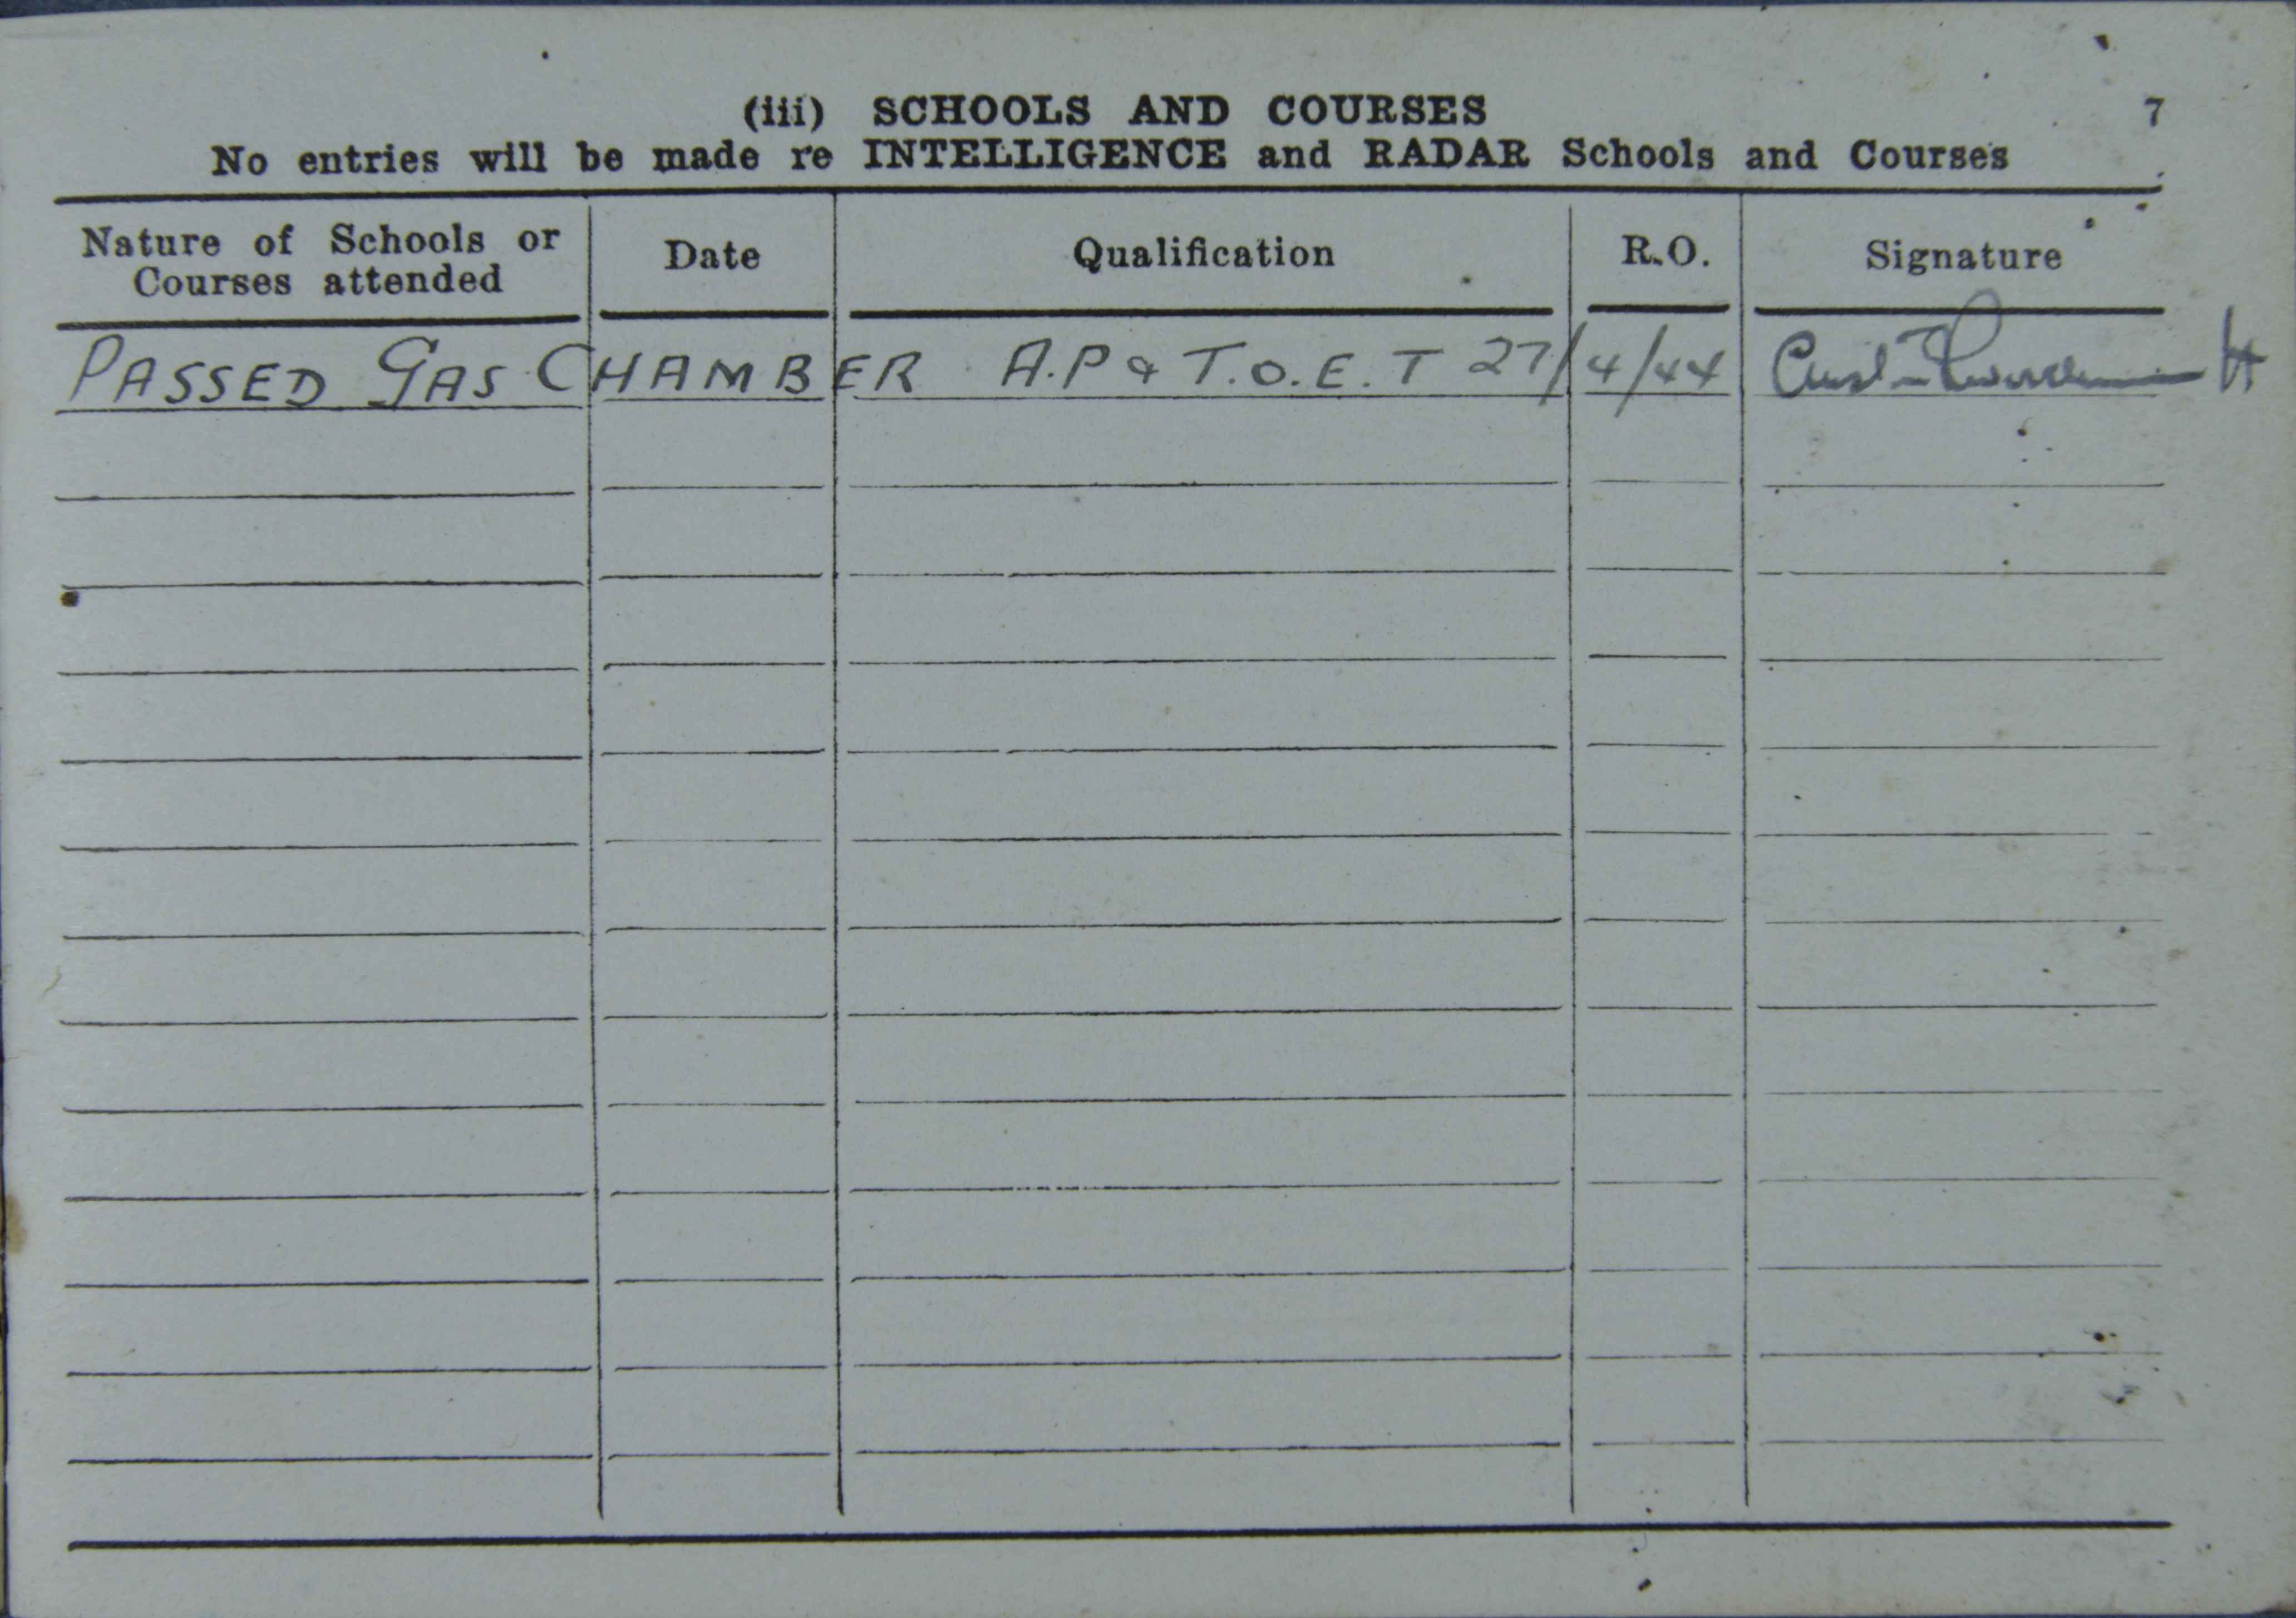 (iii) SCHOOLS AND COURSES 7
No entries will be made re INTELLIGENCE and RADAR Schools and Courses
Nature of Schools or Courses attended Date Qualification R.O. Signature
PASSED GAS CHAMBER A.P & T.O.E.T 27/4/44